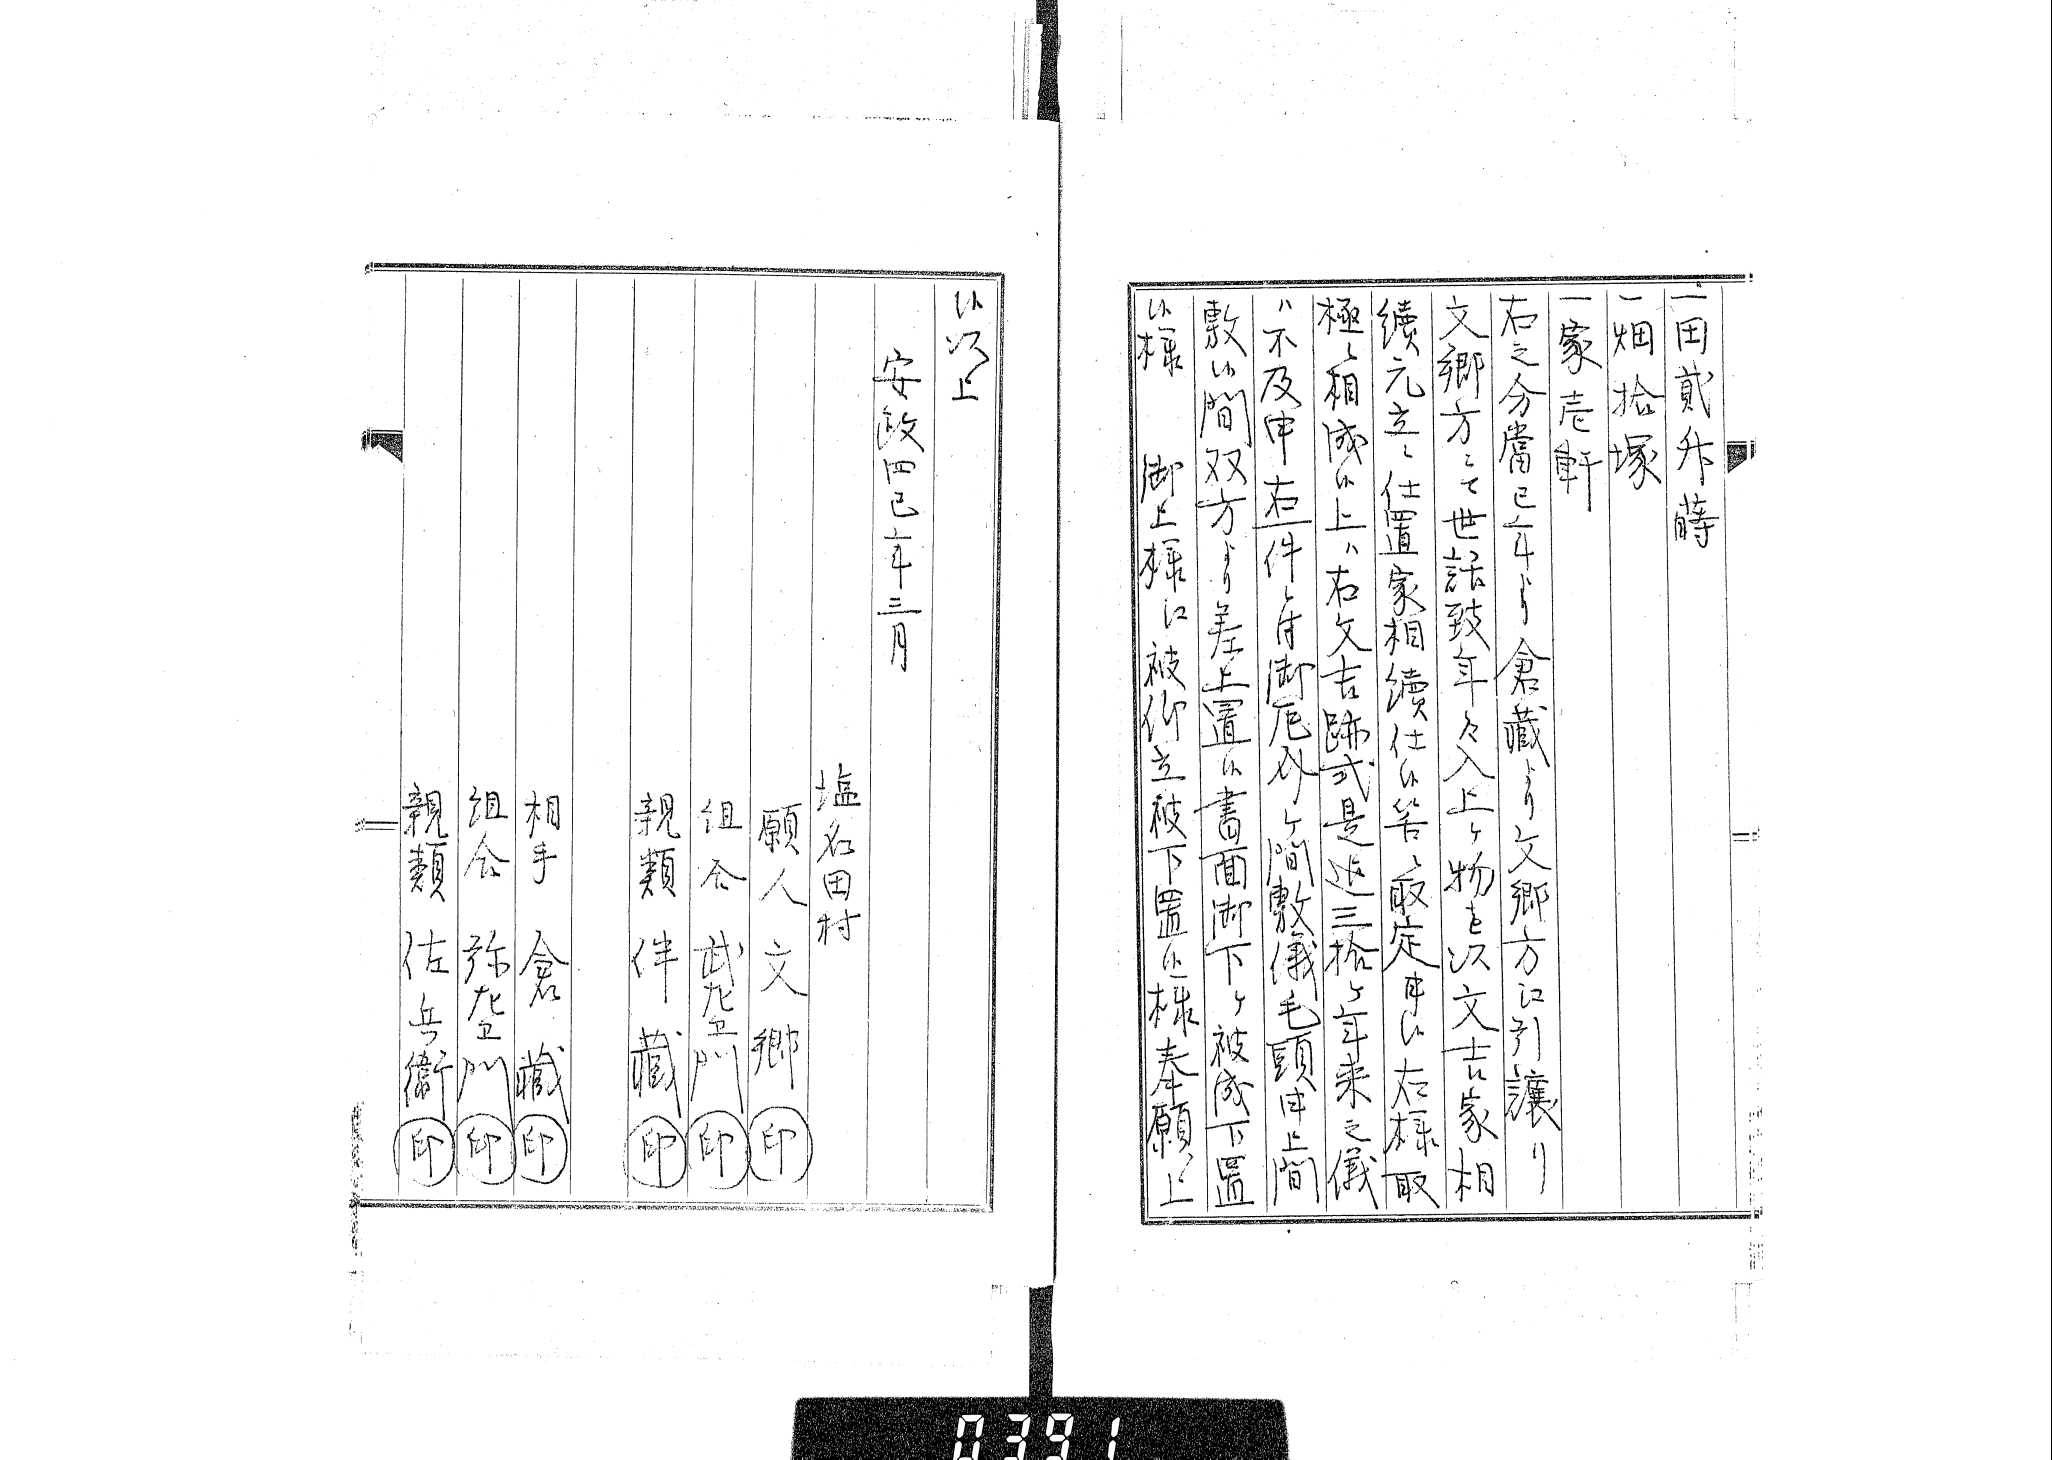 一田貳升蒔
一畑拾塚
一家壱軒
右之分當巳年より倉藏より文郷方江引譲り
文郷方ニて世話致年々入上ケ物を以文吉家相
續元立ニ仕置家相續仕候筈ニ取定申候右様取
極ニ相成候上ハ右文吉跡式是迄三拾ケ年来之儀
ハ不及申右一件ニ付御厄介ケ間敷儀毛頭申上間
敷候間双方より差上置候書面御下ケ被成下置
候様　御上様江被仰立被下置候様奉願上
候以上
安政四巳年三月
塩名田村
願人　文郷㊞
組合　武左衛門㊞
親類　伴藏㊞
相手　倉藏㊞
組合　弥左衛門㊞
親類　佐兵衛㊞
0391